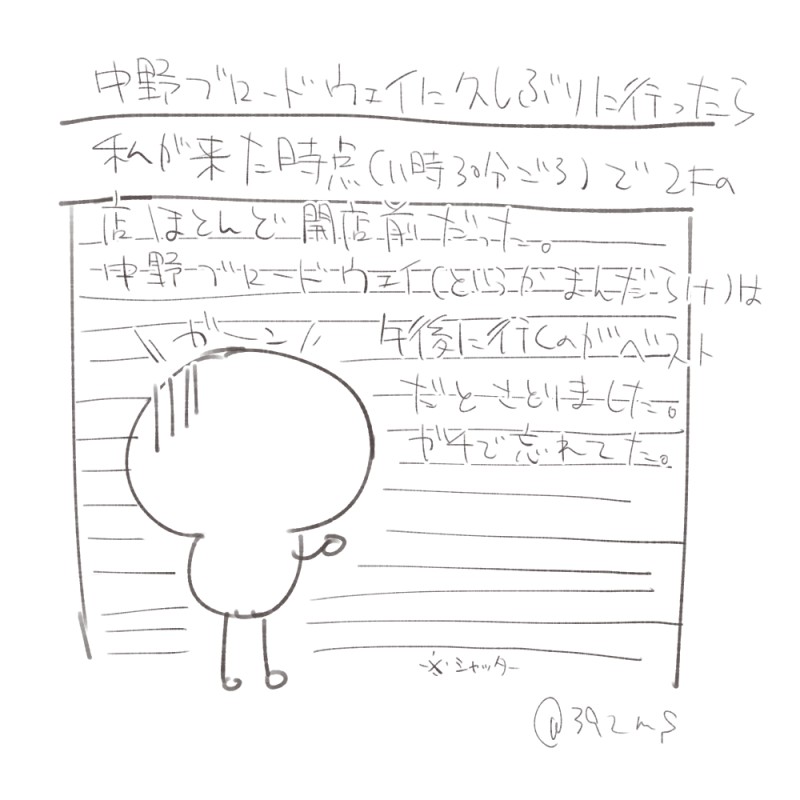 中野ブロードウェイに久しぶりに行ったら
私が来た時点(11時30分ごろ)で2Fの
店ほとんど開店前だった。
中野ブロードウェイ(というかまんだらけ)は
ガーン
午後に行くのがベスト
だとさとりました。
ガチで忘れてた。
※シャッター
@392mp